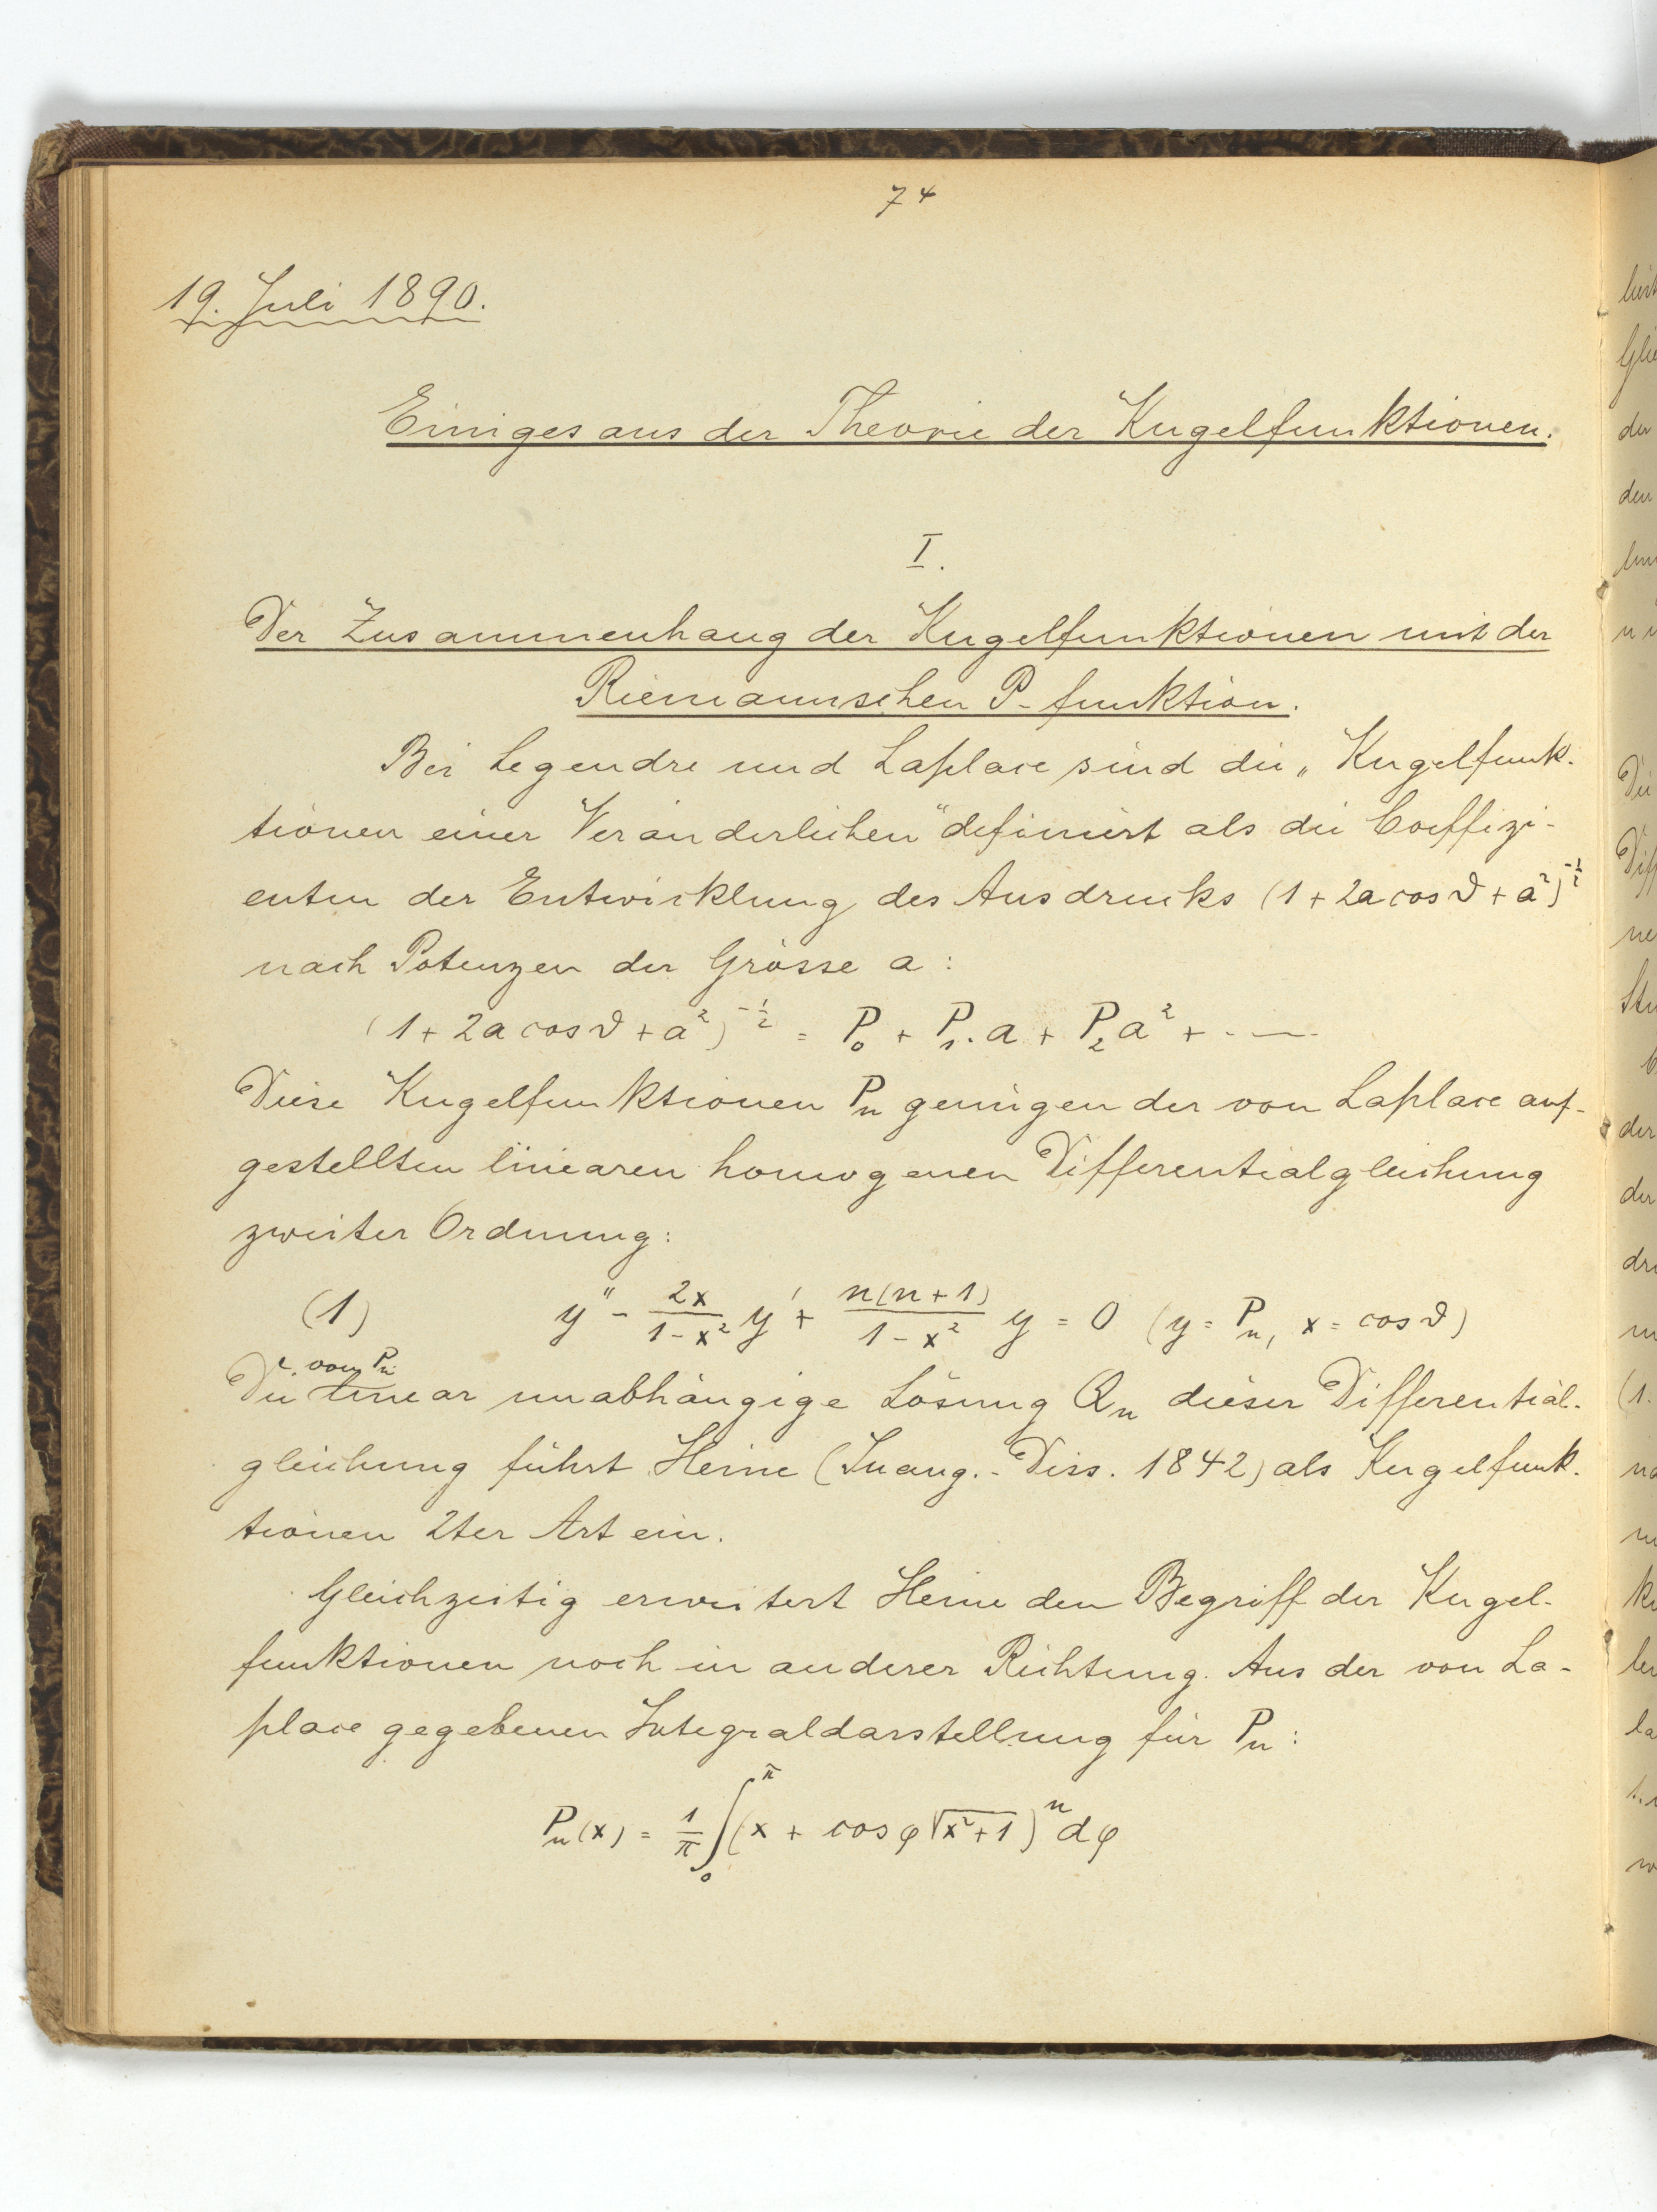 74
19. Juli 1890.
Einiges aus der Theorie der Kugelfunktionen.
I.
Der Zusammenhang der Kugelfunktionen mit der
Riemannschen P-funktion.
Bei Legendre und Laplace sind die „Kugelfunk-
tionen einer Veränderlichen“ definiert als die Coeffizi-
enten der Entwicklung des Ausdrucks (1 + 2a cos ϑ + a²)^{-1/2}
nach Potenzen der Grösse a:
(1 + 2a cos ϑ + a²)^{-1/2} = P₀ + P₁.a + P₂a² + . — .
Diese Kugelfunktionen Pₙ genügen der von Laplace auf-
gestellten linearen homogenen Differentialgleichung
zweiter Ordnung:
(1) y'' - \frac{2x}{1-x²} y' + \frac{n(n+1)}{1-x²} y = 0 (y = Pₙ, x = cos ϑ)
von Pₙ
Die linear unabhängige Lösung Qₙ dieser Differential-
gleichung führt Heine (Inaug.-Diss. 1842) als Kugelfunk-
tionen 2ter Art ein.
Gleichzeitig erweitert Heine den Begriff der Kugel-
funktionen noch in anderer Richtung. Aus der von La-
place gegebenen Integraldarstellung für Pₙ:
Pₙ(x) = \frac{1}{π} ∫₀^π (x + cos φ √(x²+1))ⁿ dφ